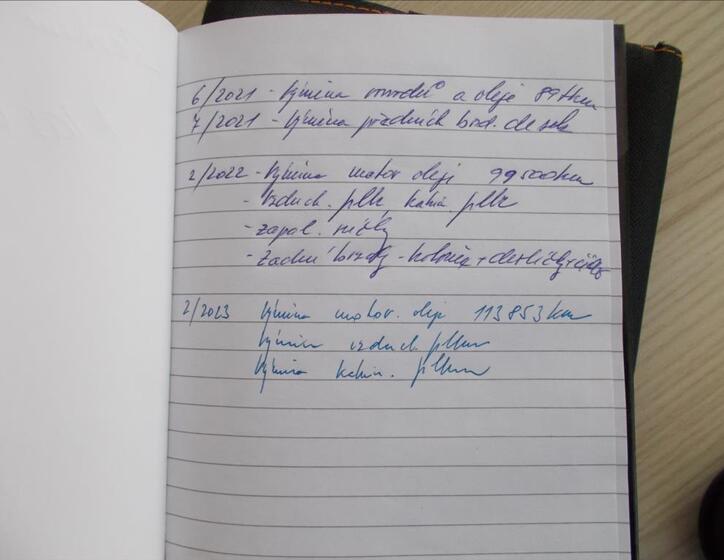 6/2021 - Výměna rozvodů a oleje 89tkm
7/2021 - Výměna předních brzd. desek
2/2022 - Výměna motor oleje 99500km
- Vzduch. filtr kabin filtr
- zapal. svíčky
- Zadní brzdy - kotouče + destičky +
2/2023 Výměna motor. oleje 113853km
Výměna vzduch. filtru
Výměna kabin. filtru